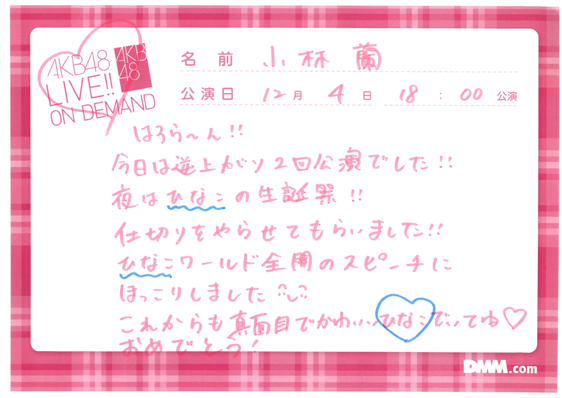 AKB48
LIVE!!
ON DEMAND
AKB
48
名前 小林蘭
公演日 12月 4日 18:00公演
はろら〜ん!!
今日は逆上がり2回公演でした!!
夜はひなこの生誕祭!!
仕切りをやらせてもらいました!!
ひなこワールド全開のスピーチに
ほっこりしました
これからも真面目でかわいいひなこでいてね♡
おめでとう!
DMM.com